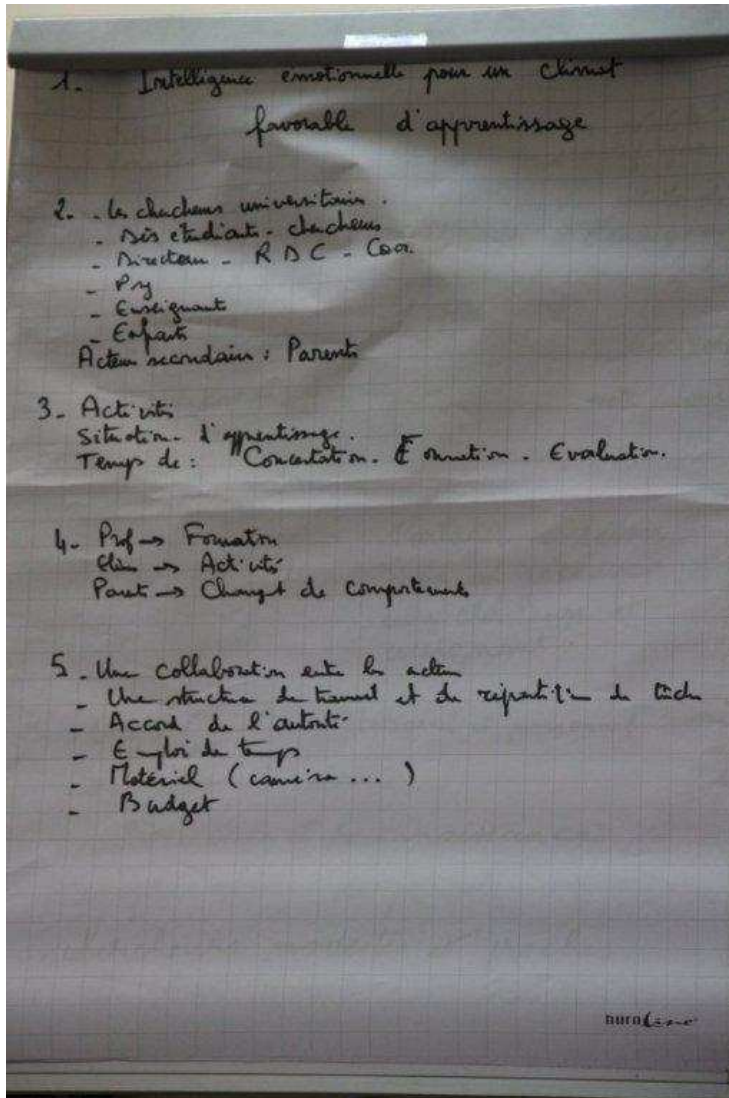 1. Intelligence emotionnelle pour un climat
favorable d'apprentissage
2. - Les chercheurs universitaires.
- Des étudiants - chercheurs
- Directeur - R D C - Coor.
- Psy
- Enseignant
- Enfants
Acteur secondaire : Parents
3- Activités
Situation d'apprentissage.
Temps de : Concertation. Formation. Evaluation.
4- Prof → Formation
Elèves → Activités
Parent → Changt de comportements
5- Une collaboration entre les acteurs
- Une structure de travail et de répartition de tâches
- Accord de l'autorité
- Emploi du temps
- Matériel (caméra ...)
- Budget